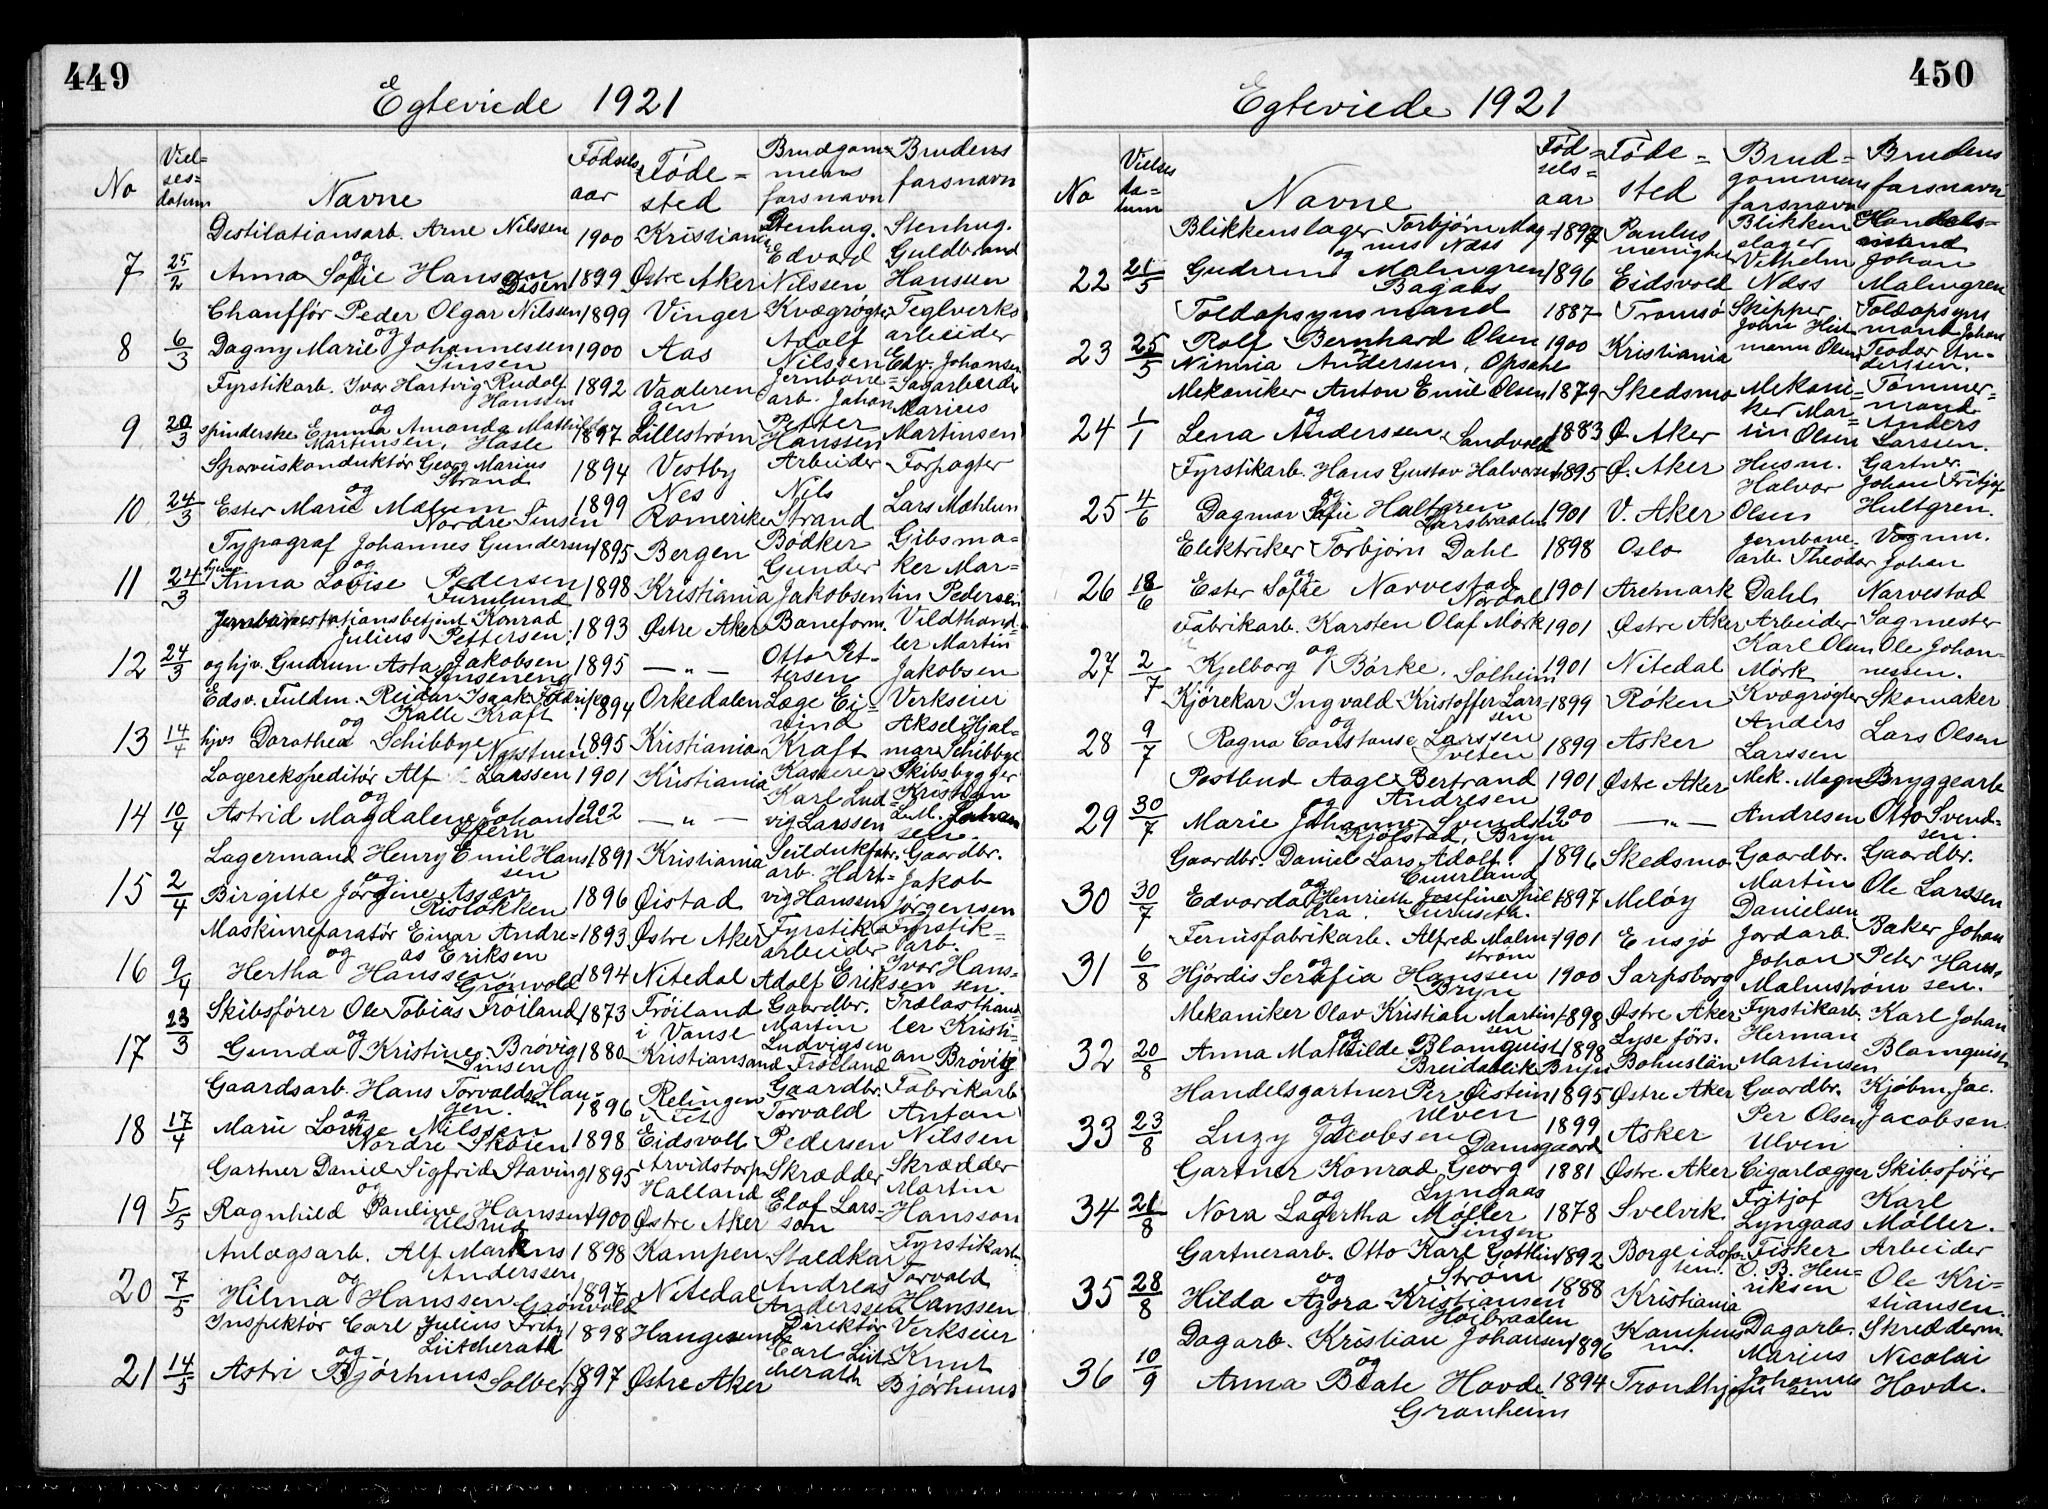 449
Egteviede 1921
No Vielsesdatum Navne Fødselsaar Fødested Brudgommens farsnavn Brudens farsnavn
7 25/2 Destilationsarb. Arne Nilssen 1900 Kristiania Stenhug. Edvard Nilssen Stenhug. Guldbrand Hanssen
og
Anna Sofie Hanssen Disen 1899 Østre Aker
8 6/3 Chauffför Peder Olgar Nilsen 1899 Vinger Kvægrøgter Adolf Nilssen Teglverksarbeider Edv. Johansen
og
Dagny Marie Johannessen Sinsen 1900 Aas
9 20/3 Fyrstikarb. Ivar Hartvig Rudolf Hanssen 1892 Vaaleren Jernbanearb. Johan Petter Hanssen Sagarbeider Marius Martinsen
og
spinderske Emma Amanda Mathilde Martinsen, Hasle 1897 Lillestrøm
10 24/3 Sporveiskonduktör Georg Marius Strand 1894 Vestby Arbeider Nils Strand Forpagter Lars Mæhlum
og
Ester Marie Nordre Sinsen 1899 Nes Romerike
11 24/3 Typograf Johannes Gundersen 1895 Bergen Bødker Gunder Jakobsen Gibsmaker Martin Pedersen
og
hjem Anna Lovise Pedersen Furulund 1898 Kristiania
12 24/3 Konrad Julius Pettersen 1893 Østre Aker Baneform. Otto Pettersen Vildthandler Martin Jakobsen
og hjv. Gudrun Asta Jakobsen Sinseneng 1895 —"—
13 14/4 Edsv. Fuldm. Reidar Isaak Fredrik Kalle Kraft 1894 Orkedalen Læge Eivind Kraft Verkseier Aksel Hjalmar Schibbye
og
hjvs Dorothea Schibbye 1895 Kristiania
14 10/4 Lagerekspeditör Alf Larssen 1901 Kristiania Kasserer Karl Ludvig Larssen Skibsbygger Kristian
og
Astrid Magdalene Johansen 1902 —"—
15 2/4 Lagermand Henry Emil Hanssen 1891 Kristiania Seildukfabr. arb. Hartvig Hanssen Gaardbr. Jakob Jørgensen
og
Birgitte Jørgine Risløkken 1896 Øistad
16 9/4 Maskinreparatör Einar Andreas Eriksen 1893 Østre Aker Fyrstikarbeider Adolf Eriksen Fyrstikarb. Ivar Hanssen.
og
Hertha Hanssen Grönvold 1894 Nitedal
17 23/3 Skibsfører Ole Tobias Frøiland 1873 Frøiland i Vanse Gaardbr. Martin Ludvigsen Frøiland Trælasthandler Kristian Brøvig
og
Gunda Kristine Brøvig Sinsen 1880 Kristiansand
18 17/4 Gaardsarb. Hans Torvaldsen Haugen. 1896 Relingen i Fet Gaardbr. Torvald Pedersen Fabrikarb. Anton Nilssen
og
Marie Lovise Nilssen Nordre Skøien 1898 Eidsvoll
19 5/5 Gartner Daniel Sigfrid Staving 1895 Arvidstorp Halland Skrædder Elof Larsson Skrædder Martin Hansson
og
Ragnhild Pauline Hanssen Ulsrud 1900 Østre Aker
20 7/5 Anlægsarb. Alf Markus Anderssen 1898 Kampen Staldkar Andreas Anderssen Fyrstikarb. Torvald Hanssen
og
Hilma Hanssen Grønvold 1897 Nitedal
21 14/5 Inspektör Carl Julius Fritz Lütcherath 1898 Haugesund Direktör Carl Lütcherath Verkseier Knut Bjørhuus
og
Astri Bjørhuus Solberg 1897 Østre Aker
450
Egteviede 1921
No Vielsesdatum Navne Fødselsaar Fødested Brudgommens farsnavn Brudens farsnavn
22 21/5 Blikkenslager Torbjørn Magnus Næss 1897 Paulus menighet Blikkenslager Vilhelm Næss Handelsmand Johan Malmgren
og
Gudrun Malmgren 1896 Eidsvold
23 25/5 Toldopsynsmand Rolf Bernhard Olsen 1887 Tromsø Skipper John Olsen Toldopsynsmand Johan Teodor Anderssen.
og
Ninnia Anderssen, Opsahl 1900 Kristiania
24 1/1 Mekaniker Anton Emil Olsen 1879 Skedsmo Mekaniker Martin Olsen Tømmermand Anders Larssen.
og
Lena Anderssen, Sandvold 1883 Ø. Aker
25 4/6 Fyrstikarb. Hans Gustav Halvorsen 1895 Ø. Aker Husm. Halvor Olsen Gartner Johan Fritjof Hultgren.
og
Dagmar Sofie Hultgren Larsbraaten 1901 V. Aker
26 18/6 Elektriker Torbjørn Dahl 1898 Oslo Jernbanearb. Theodor Dahl Vognm. Johan Narvestad
og
Ester Sofie Narvestad Nordal 1901 Aremark
27 2/7 Fabrikarb. Karsten Olaf Mørk 1901 Østre Aker Arbeider Karl Olsen Mørk Sagmester Ole Johannessen.
og
Kjelborg Børke, Solheim 1901 Nitedal
28 9/7 Kjørekar Ingvald Kristoffer Larssen 1899 Røken Kvægrøgter Anders Larssen Skomaker Lars Olsen
og
Ragna Constanse Larssen Tveten 1899 Asker
29 30/7 Postbud Aage Bertrand Andresen 1901 Østre Aker Mek. Magn. Andresen Bryggearb. Otto Svendsen.
og
Marie Johanne Svendsen Kjølstad, Bryn 1900 —"—
30 30/7 Gaardbr. Daniel Lars Adolf Cuurland 1896 Skedsmo Gaardbr. Martin Danielsen Gaardbr. Ole Larssen
og
Edvarda Henriette Josefine Furuseth. 1897 Meløy
31 6/8 Fernisfabrikarb. Alfred Malmstrøm 1901 Ensjø Jordarb. Johan Malmstrøm Baker Johan Peter Hanssen.
og
Hjördis Serafia Hanssen Bryn 1900 Sarpsborg
32 20/8 Mekaniker Olav Kristian Martinsen 1898 Østre Aker Fyrstikarb. Herman Martinsen Karl Johan Blomquist
og
Anna Mathilde Blomquist Breidablik Bryn 1898 Lyse förs. Bohuslän
33 23/8 Handelsgartner Per Øistein Ulven 1895 Østre Aker Gaardbr. Per Olsen Ulven Kjøbm. Jac. Jacobsen.
og
Luzy Jacobsen Damsgaard 1899 Asker
34 21/8 Gartner Konrad Georg Lyngaas 1881 Østre Aker Cigarlægger Fritjof Lyngaas Skibsfører Karl Møller.
og
Nora Lagertha Møller Sinsen 1878 Svelvik
35 28/8 Gartnerarb. Otto Karl Gottlin Strøm 1892 Borge i Lofoten. Fisker O. B. Henriksen Arbeider Ole Kristiansen.
og
Hilda Azora Kristiansen Høibraaten 1888 Kristiania
36 10/9 Dagarb. Kristian Johansen 1896 Kampens m. Dagarb. Marius Johannessen Skrædderm. Nicolai Hovde.
og
Anna Beate Hovde Granheim 1894 Trondhjem